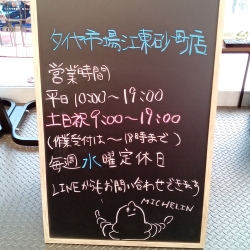 タイヤ市場江東砂町店
営業時間
平日10:00～19:00
土日祝9:00～19:00
(作業受付は～18時まで)
毎週水曜定休日
LINEからもお問い合わせできます
MICHELIN